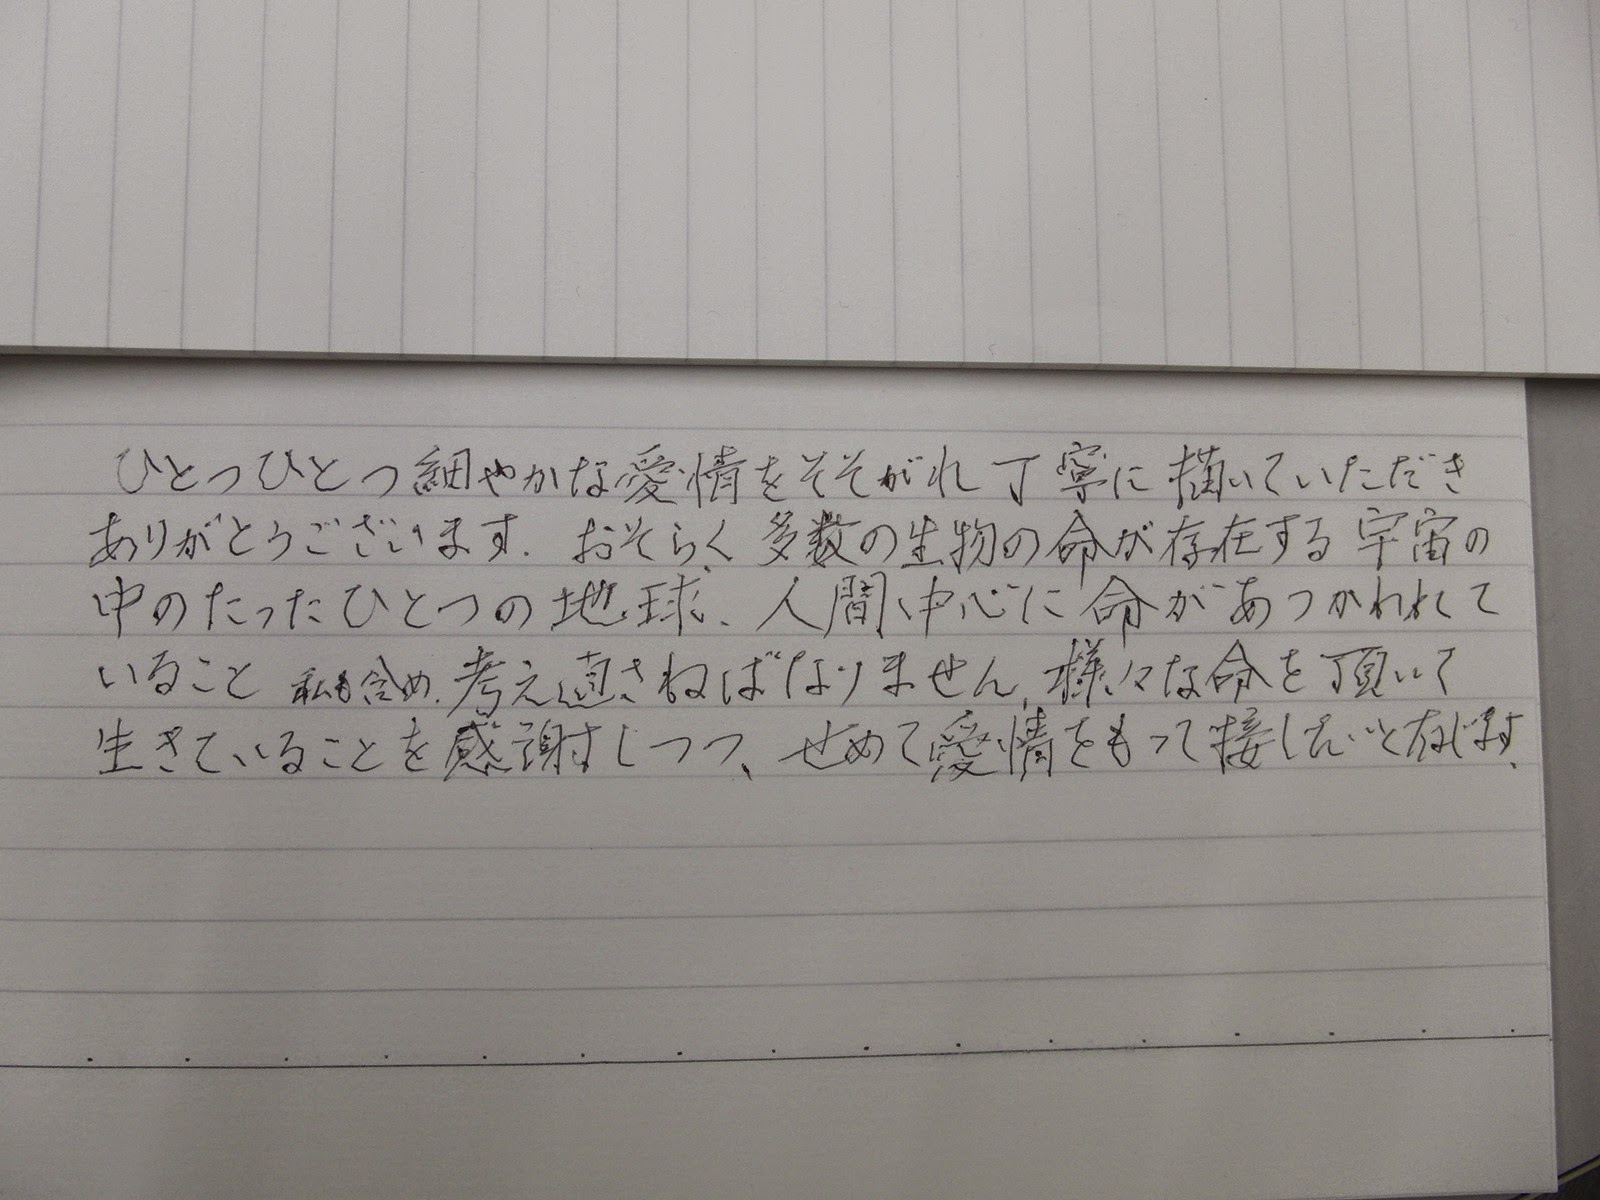 ひとつひとつ細やかな愛情をそそがれ丁寧に描いていただき
ありがとうございます. おそらく、多数の生物の命が存在する宇宙の
中のたったひとつの地球、人間中心に命があつかわれて
いること 私も含め、考え直さねばなりません、様々な命を頂いて
生きていることを感謝しつつ、せめて愛情をもって接したいと存じます、